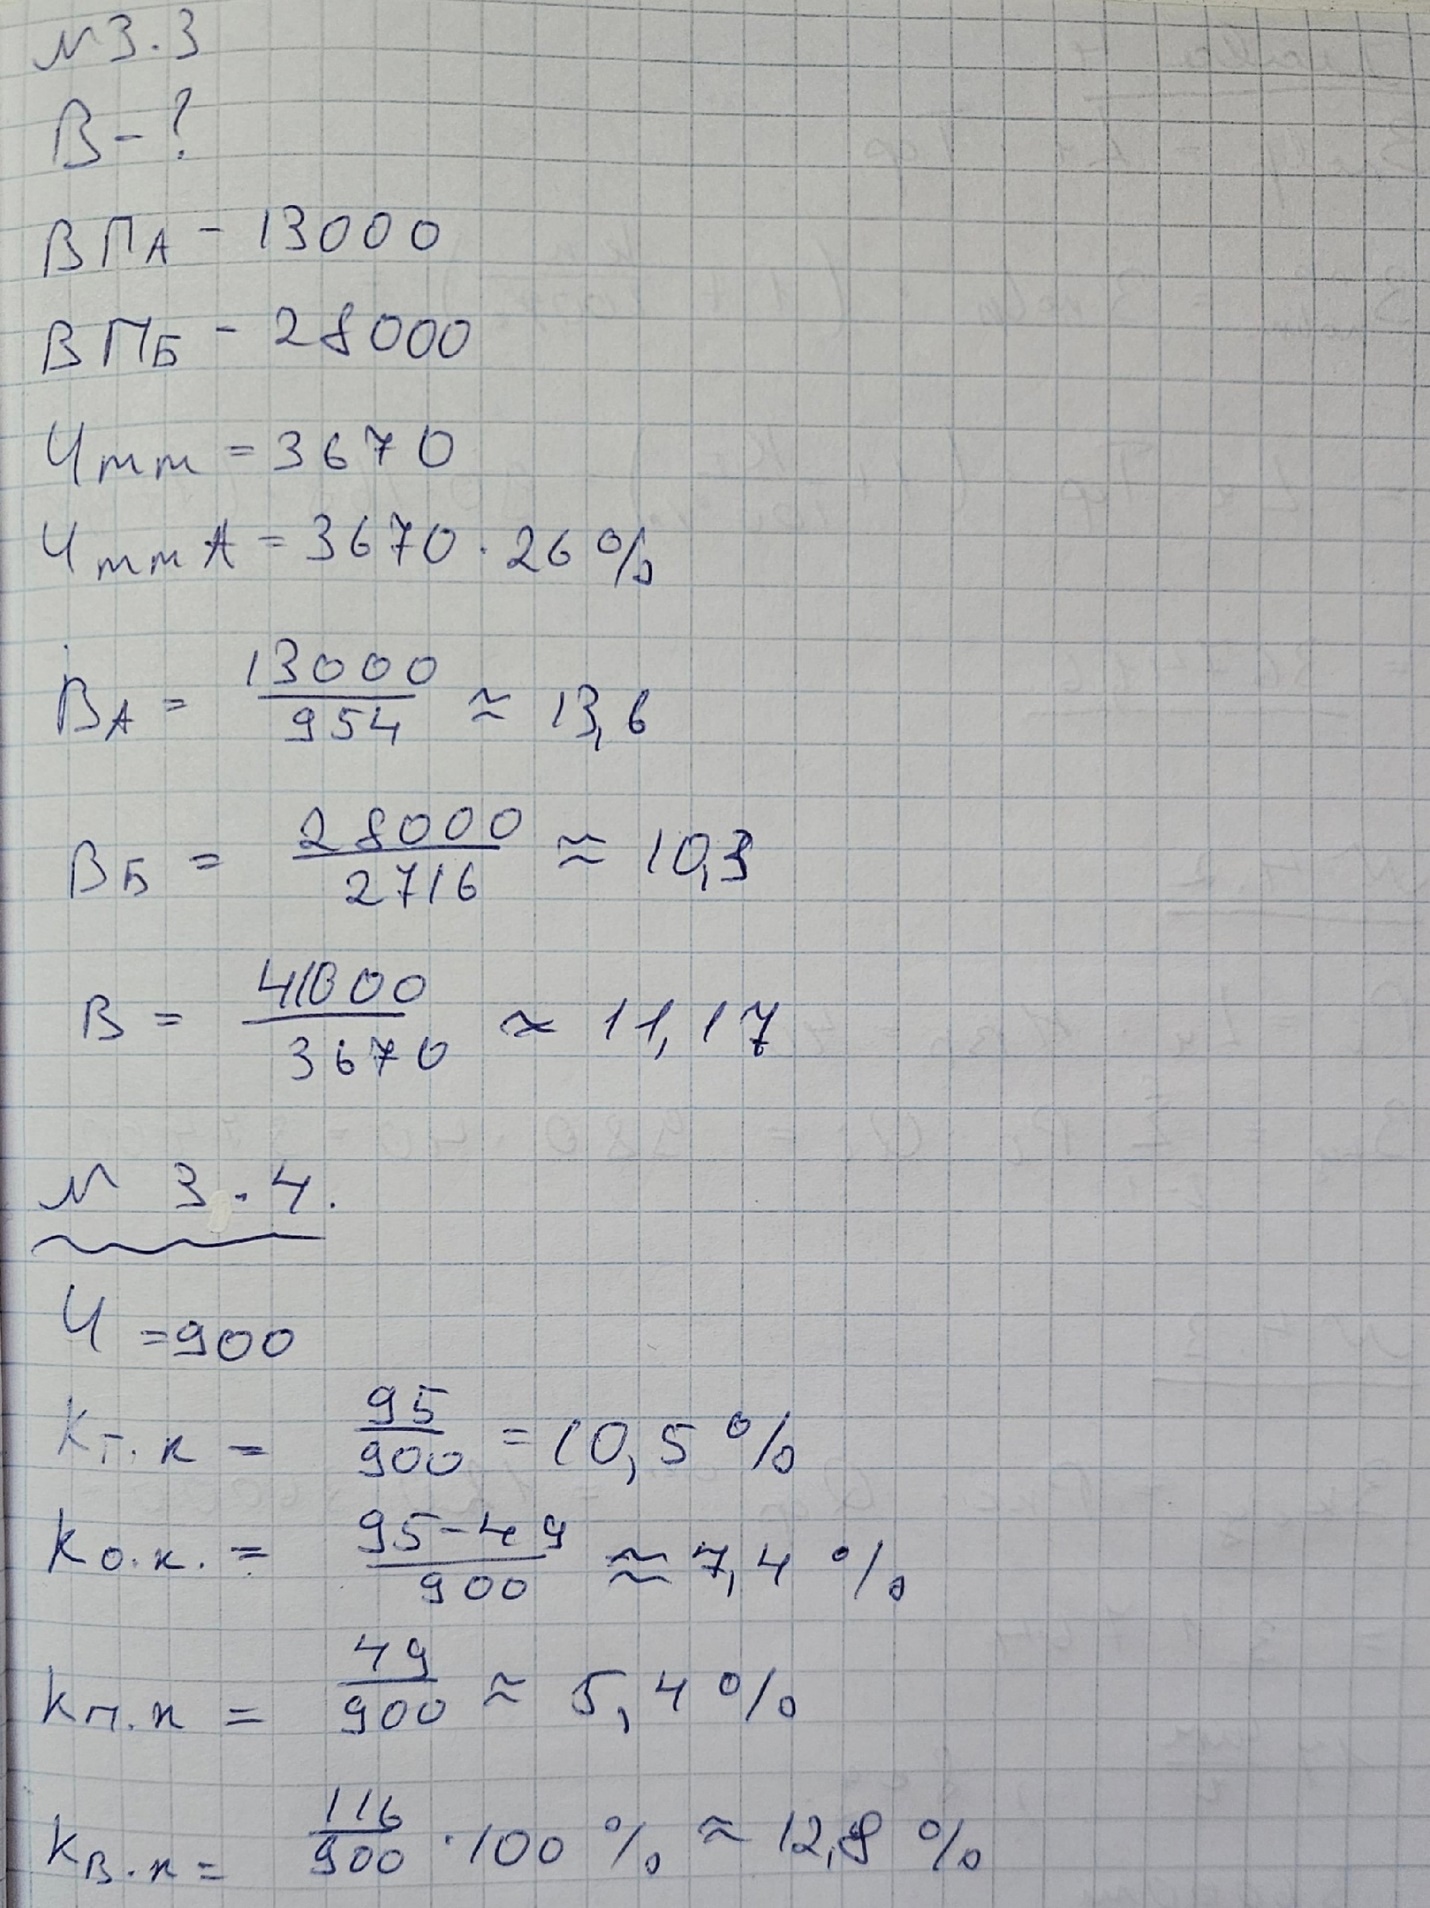 №3.3
В-?
ВПА - 13000
ВПБ - 28000
Чтт = 3670
ЧттА = 3670 · 26%
ВА = 13000/954 ≈ 13,6
ВБ = 28000/2716 ≈ 10,3
В = 41000/3670 ≈ 11,17
№ 3.4.
Ч = 900
Кт.к = 95/900 = 10,5%
Ко.к. = 95-49/900 ≈ 7,4%
Кп.к = 49/900 ≈ 5,4%
Кв.к = 116/900 · 100% ≈ 12,8%